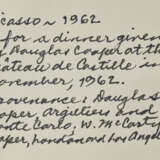 icasso ~ 1962
for a dinner given
Douglas Cooper at the
âteau de Castille in
ovember, 1962.
rovenance: Douglas
oper, Argilliers and
onte Carlo, W. McCarty
oper, London and Los Angel